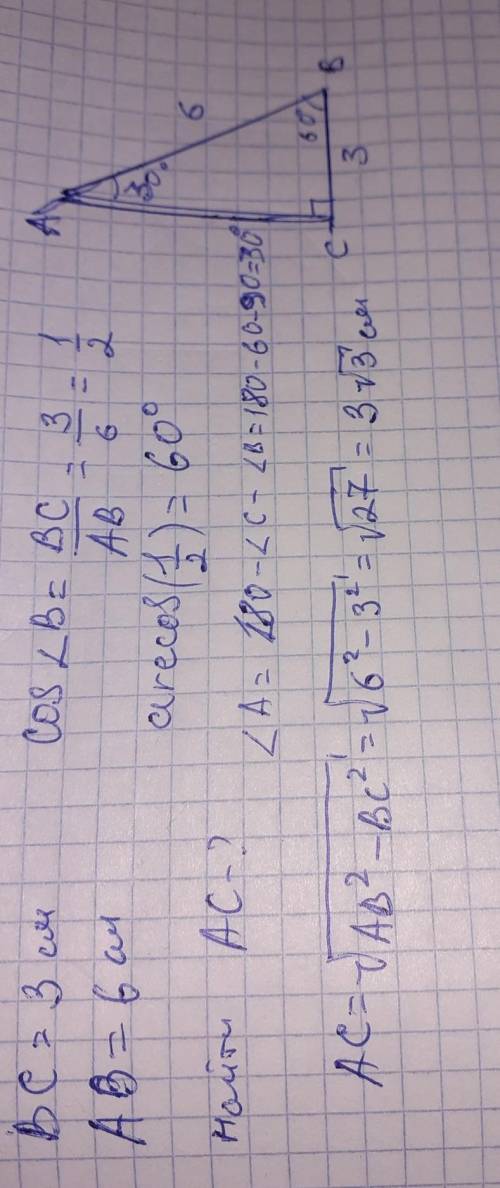 BC = 3 см
AB = 6 см
Найти AC - ?
cos ∠B = BC/AB = 3/6 = 1/2
arccos(1/2) = 60°
∠A = 180 - ∠C - ∠B = 180 - 60 - 90 = 30°
AC = √(AB² - BC²) = √(6² - 3²) = √27 = 3√3 см
A
30°
6
60°
B
3
C